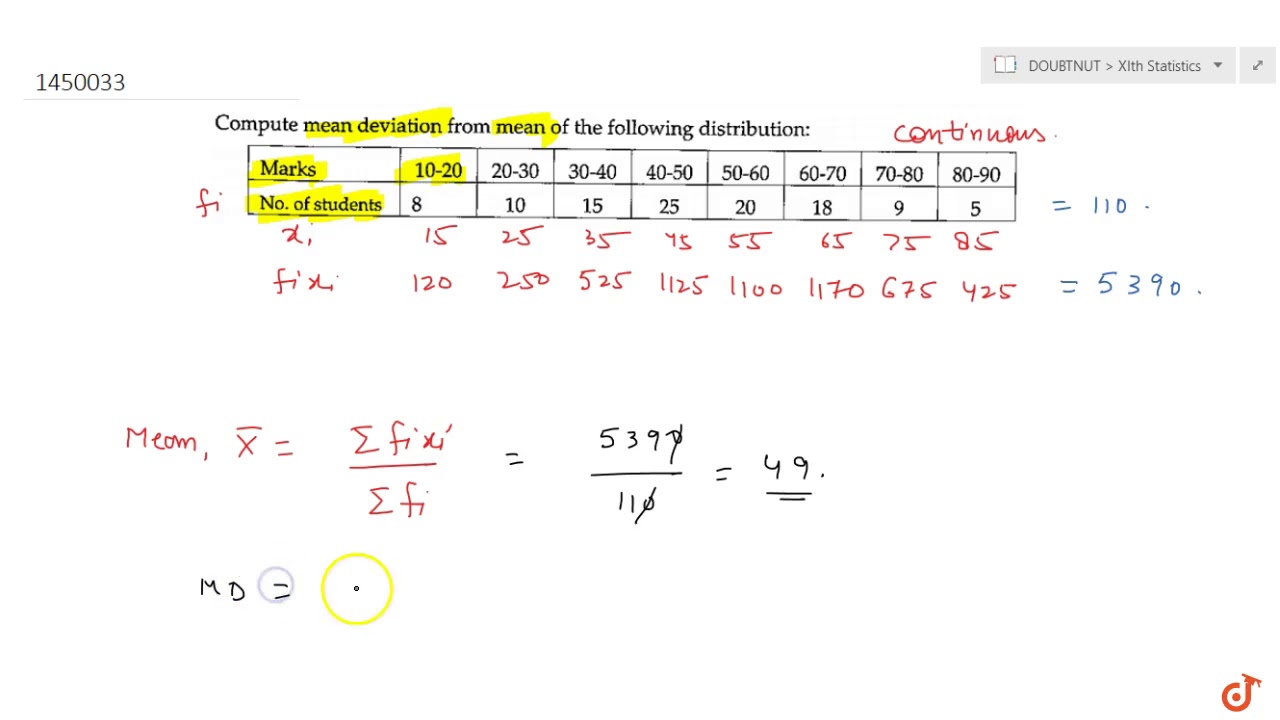 DOUBTNUT > XIth Statistics
1450033
Compute mean deviation from mean of the following distribution: continuous.
Marks 10-20 20-30 30-40 40-50 50-60 60-70 70-80 80-90
fi No. of students 8 10 15 25 20 18 9 5 = 110.
xi 15 25 35 45 55 65 75 85
fixi 120 250 525 1125 1100 1170 675 425 = 5390.
Mean, X̄ = Σfixi / Σfi = 5390 / 110 = 49.
MD =